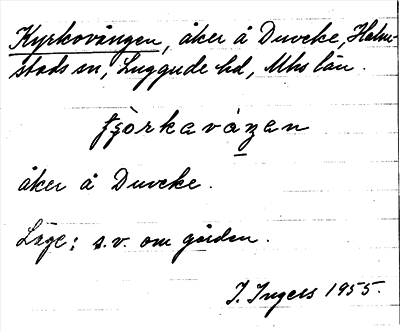 Kyrkovången, åker å Duveke, Halm-
stads sn, Luggude hd, Mhs län.
tʃòrkavåŋen
åker å Duveke.
Läge: s.v. om gården.
I. Ingers 1955.